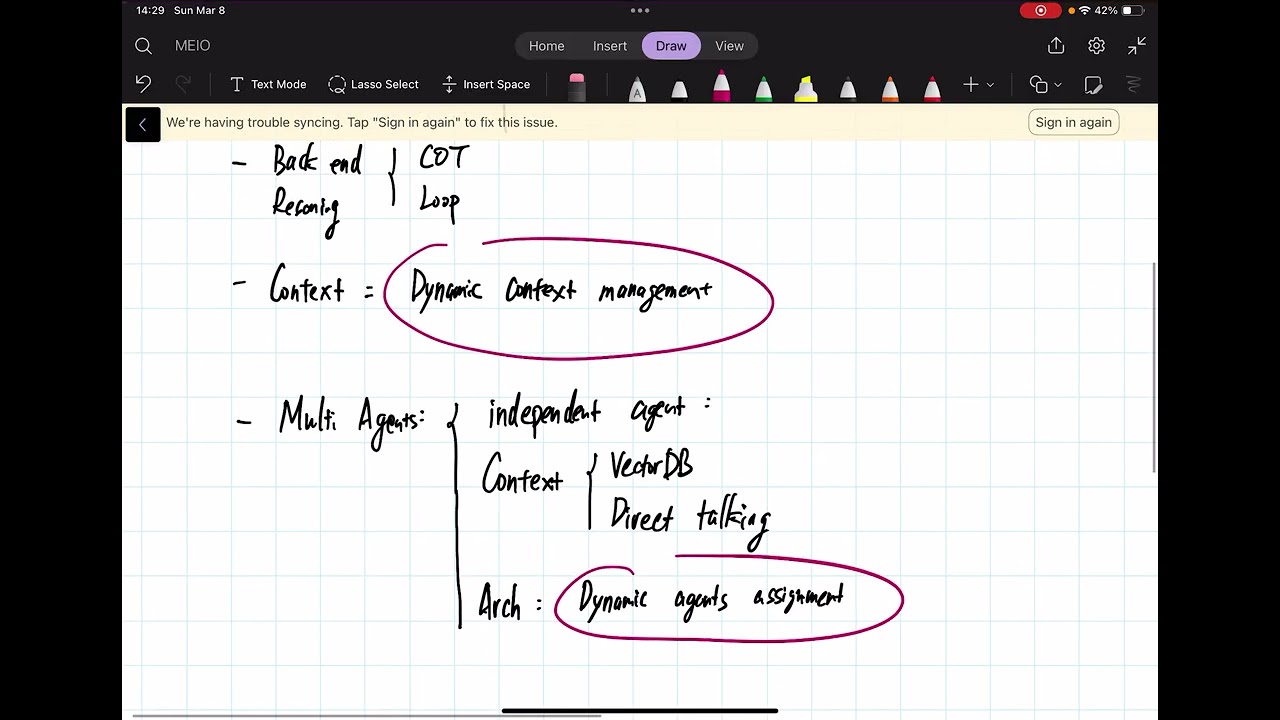 14:29 Sun Mar 8
42%
MEIO
Home Insert Draw View
Text Mode Lasso Select Insert Space
A
We're having trouble syncing. Tap "Sign in again" to fix this issue.
Sign in again
- Back end { COT
Resoning Loop
- Context = Dynamic context management
- Multi Agents: { independent agent :
Context { VectorDB
Direct talking
Arch : Dynamic agents assignment